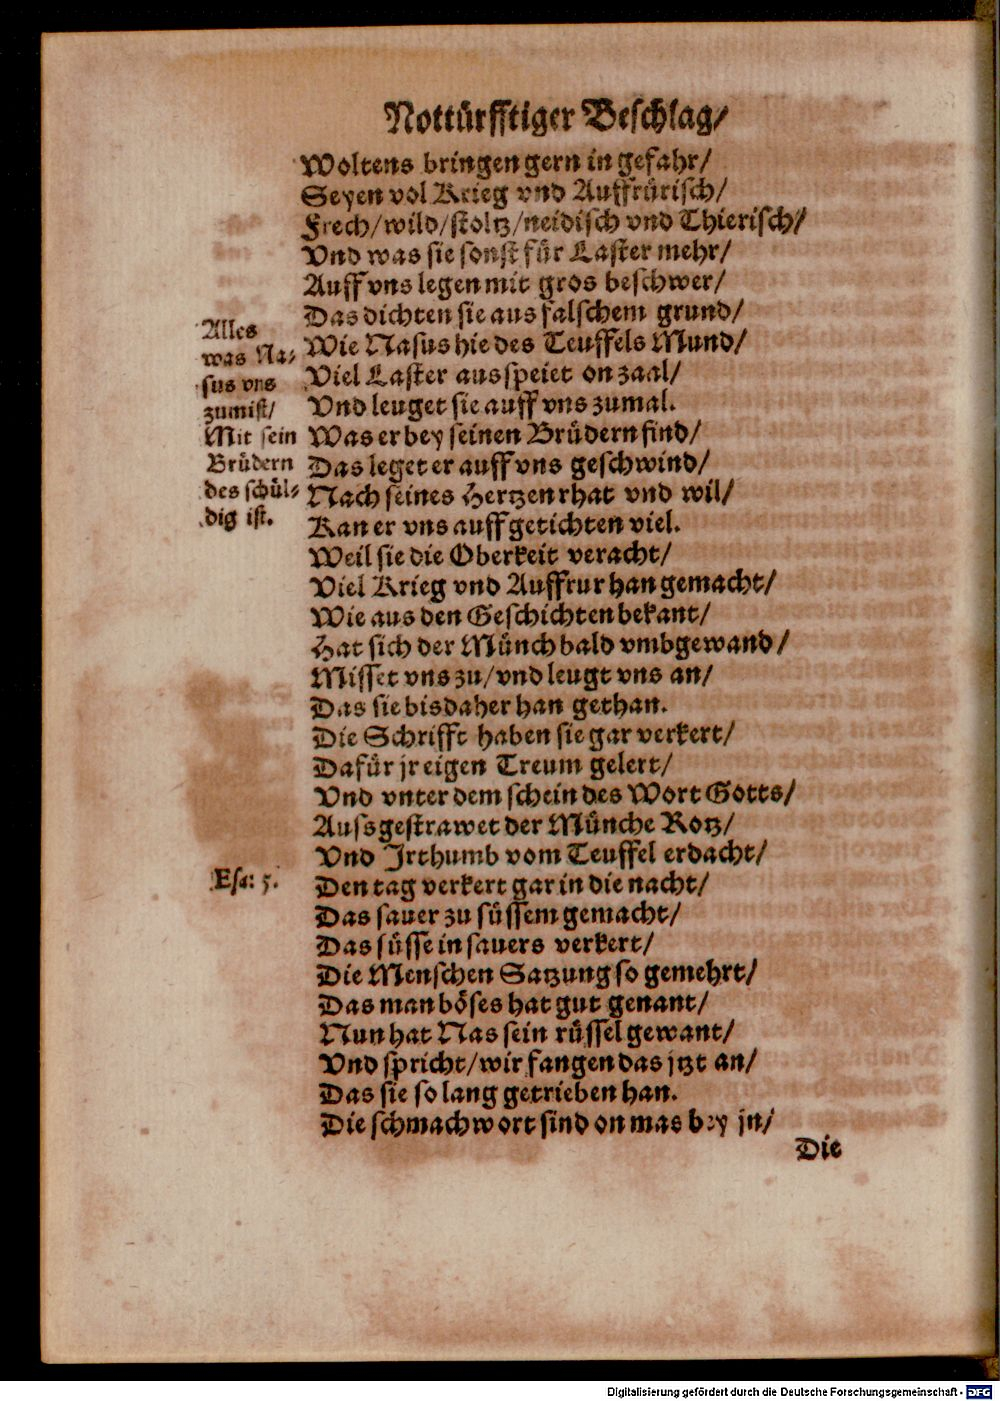 Nottürfftiger Beschlag/
Woltens bringen gern in gefahr/
Seyen vol Krieg vnd Auffrürisch/
Frech/wild/stoltz/neidisch vnd Thierisch/
Vnd was sie sonst für Laster mehr/
Auff vns legen mit gros beschwer/
Das dichten sie aus falschem grund/
Wie Nasus hie des Teuffels Mund/
Viel Laster ausspeiet on zaal/
Vnd leuget sie auff vns zumal.
Was er bey seinen Brüdern find/
Das leget er auff vns geschwind/
Nach seines Hertzen rhat vnd wil/
Kan er vns auff getichten viel.
Weil sie die Oberkeit veracht/
Viel Krieg vnd Auffrur han gemacht/
Wie aus den Geschichten bekant/
Hat sich der Münch bald vmbgewand/
Misset vns zu/vnd leugt vns an/
Das sie bisdaher han gethan.
Die Schrifft haben sie gar verkert/
Dafür jr eigen Treum gelert/
Vnd vnter dem schein des Wort Gotts/
Aussgestrawet der Münche Rotz/
Vnd Irthumb vom Teuffel erdacht/
Den tag verkert gar in die nacht/
Das sauer zu süssem gemacht/
Das süsse in sauers verkert/
Die Menschen Satzung so gemehrt/
Das man böses hat gut genant/
Nun hat Nas sein rüssel gewant/
Vnd spricht/wir fangen das jtzt an/
Das sie so lang getrieben han.
Die schmachwort sind on mas bey jn/
Die
Alles
was Na-
sus vns
zumist/
Mit sein
Brüdern
des schül-
dig ist.
Esa: 5.
Digitalisierung gefördert durch die Deutsche Forschungsgemeinschaft - DFG